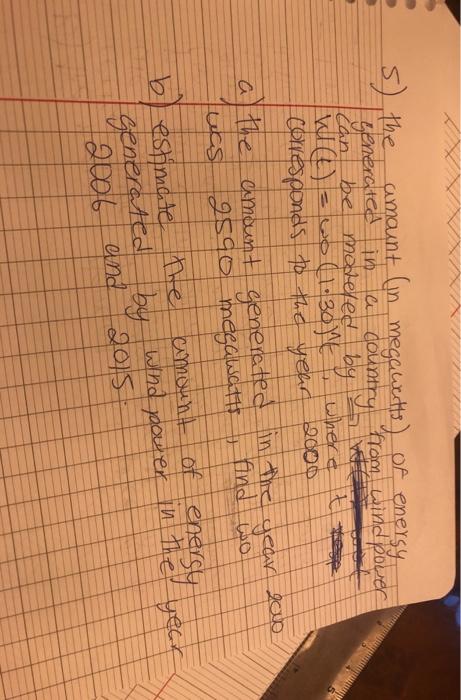 5) the amount (in megawatts) of energy
generated in a country from wind power
can be modeled by =
W(t) = wo (1.30)^t, where t
corresponds to the year 2000
a) the amount generated in the year 2000
was 2590 megawatts, find wo
b) estimate the amount of energy
generated by wind power in the year
2006 and 2015.